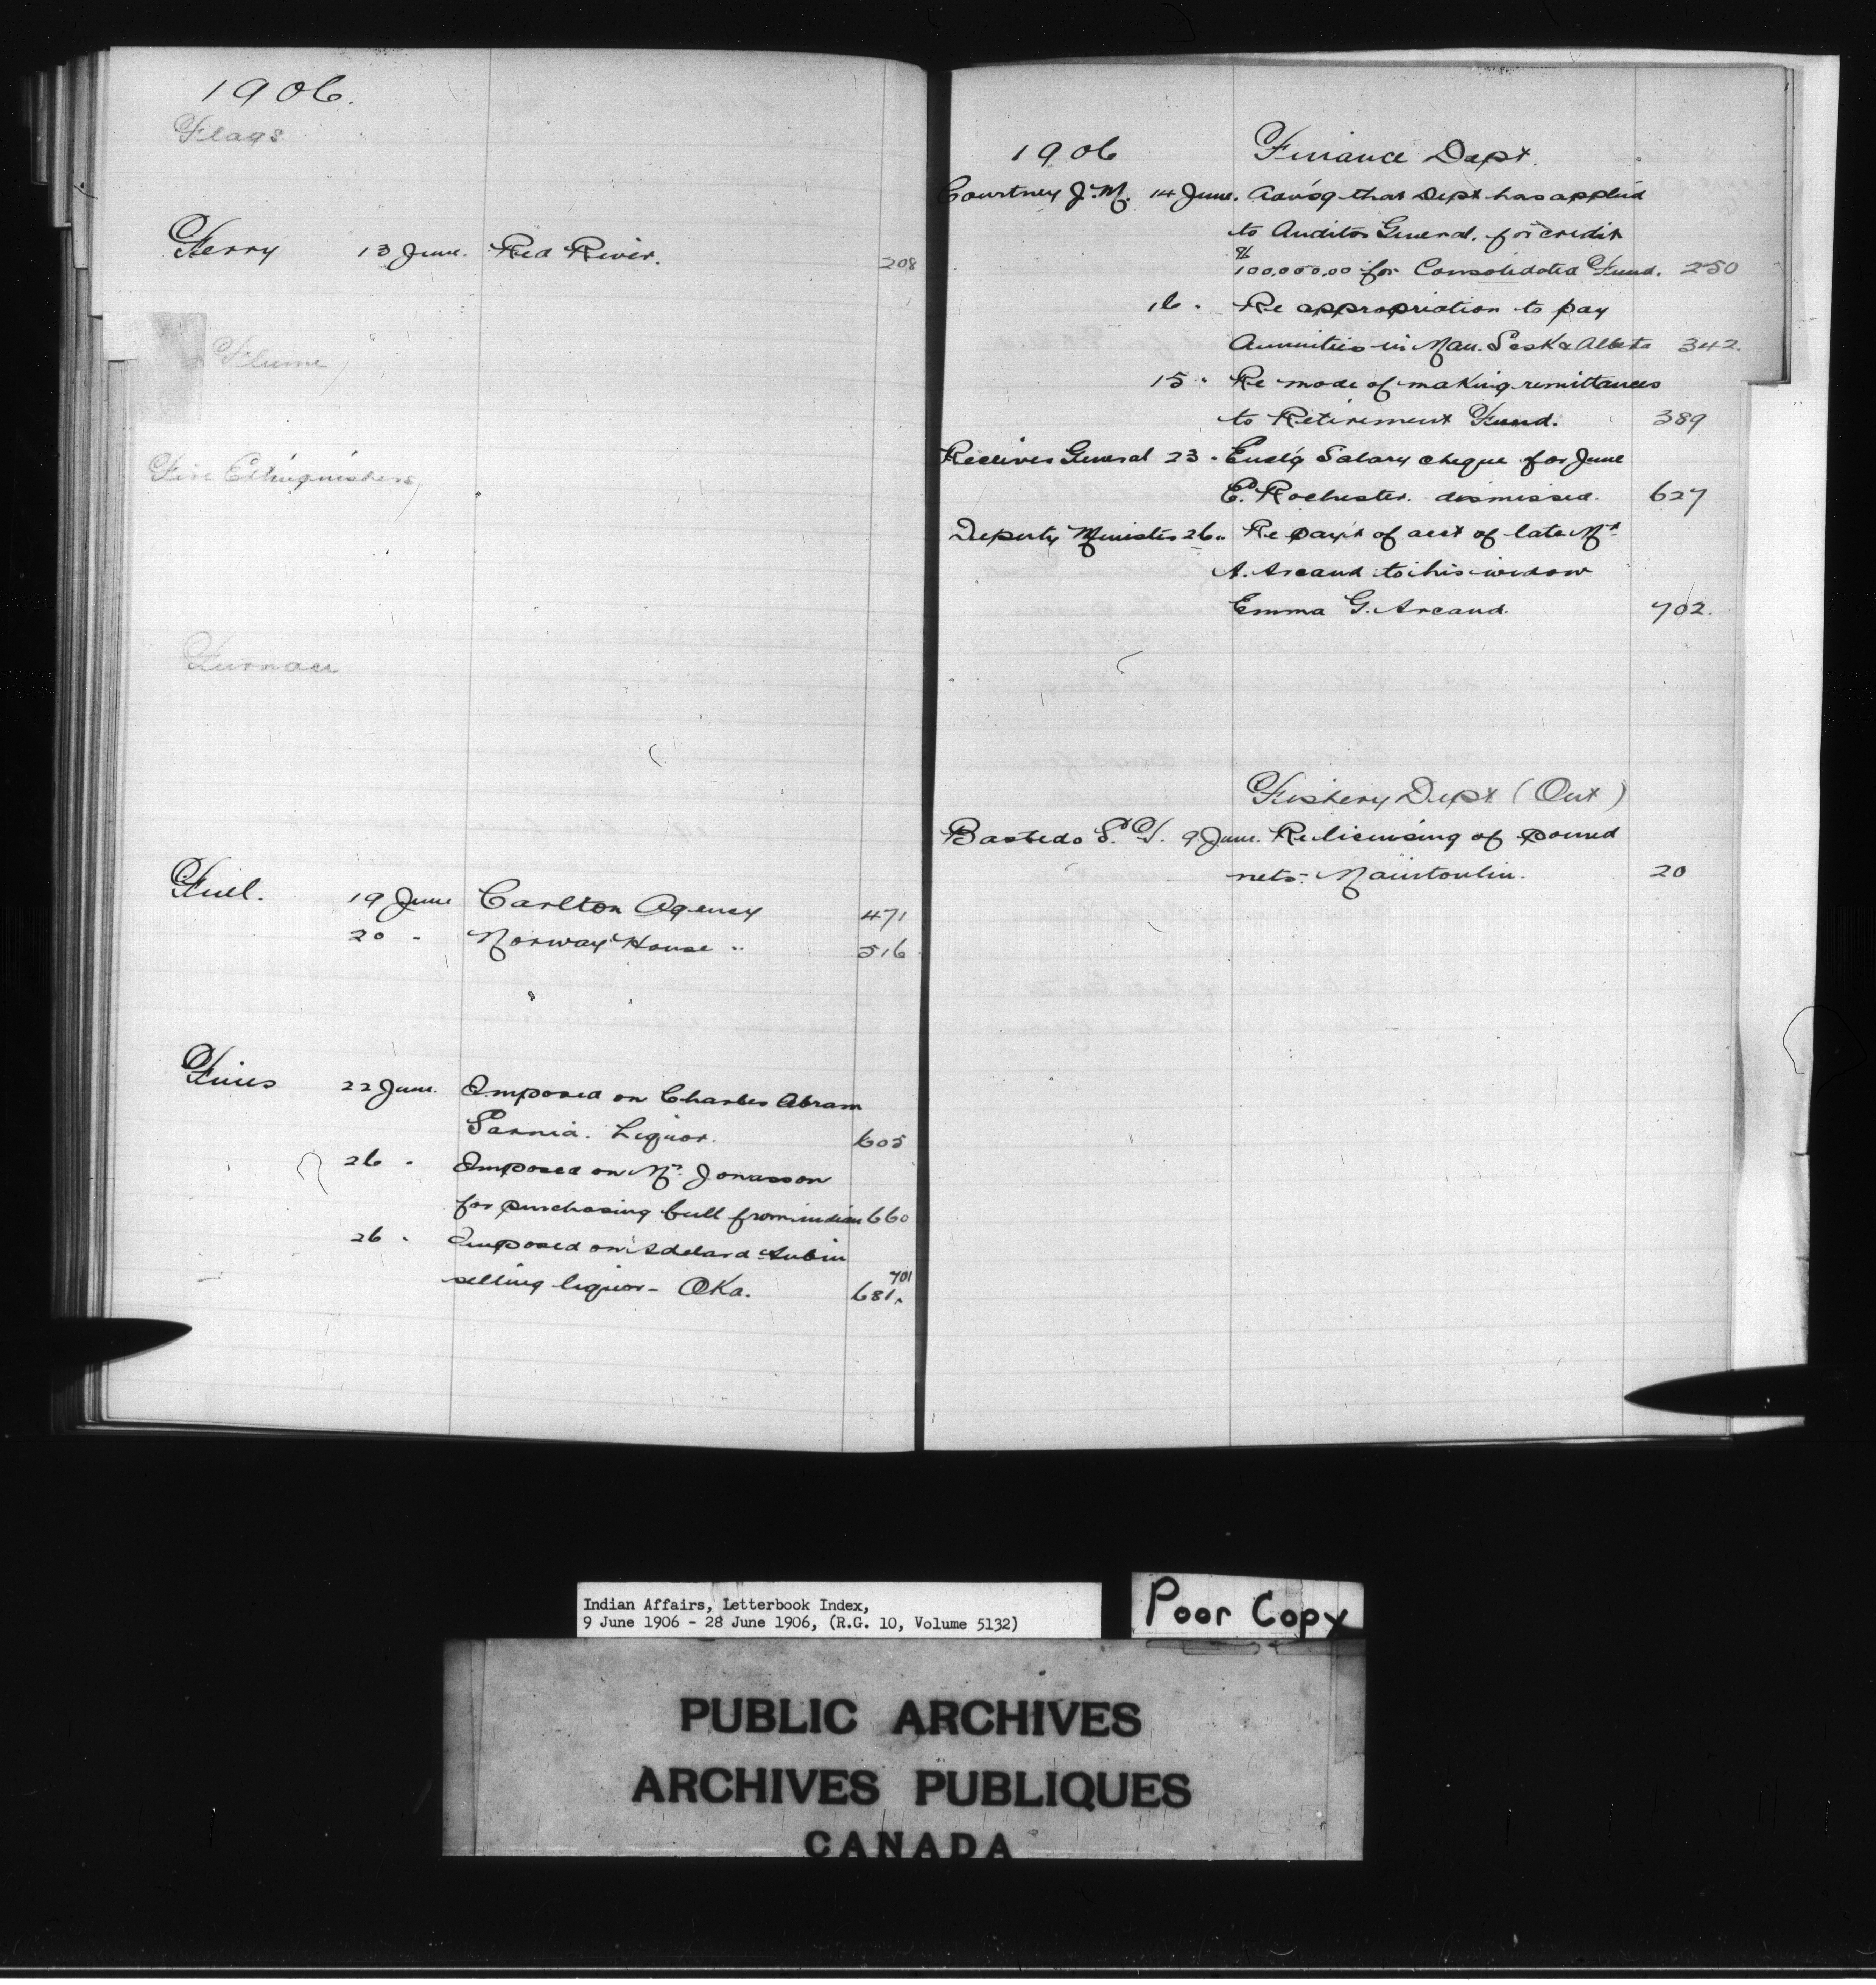 1906.
Flags
Ferry 13 June. Red River. 208
Flume
Fire Extinguishers
Furnace
Fuel. 19 June Carlton Agency 471
20 " Norway House " 516
Fines 22 June. Imposed on Charles Abram
Sarnia. Liquor. 605
26 " Imposed on Mr. Jonasson
for purchasing bull from indian 660
26 " Imposed on Adelard Aubin
selling liquor - Oka. 681, 701
1906 Finance Dept.
Courtney J. M. 14 June. Advs'g that Dept has applied
to Auditor General. for credit
$100,000,00 for Consolidated Fund. 250
16 " Re appropriation to pay
Annuities in Man. Sask & Alberta 342.
15 " Re mode of making remittances
to Retirement Fund. 389
Receiver General 23 " Encl'g Salary cheque for June
E. Rochester. dismissed. 627
Deputy Minister 26 " Re paym't of acct of late Mr
A. Arcand to his widow
Emma G. Arcand. 702.
Fishery Dept (Ont)
Bastedo S. T. 9 June. Re licensing of pound
nets. Manitoulin. 20
Indian Affairs, Letterbook Index,
9 June 1906 - 28 June 1906, (R.G. 10, Volume 5132)
Poor Copy
PUBLIC ARCHIVES
ARCHIVES PUBLIQUES
CANADA